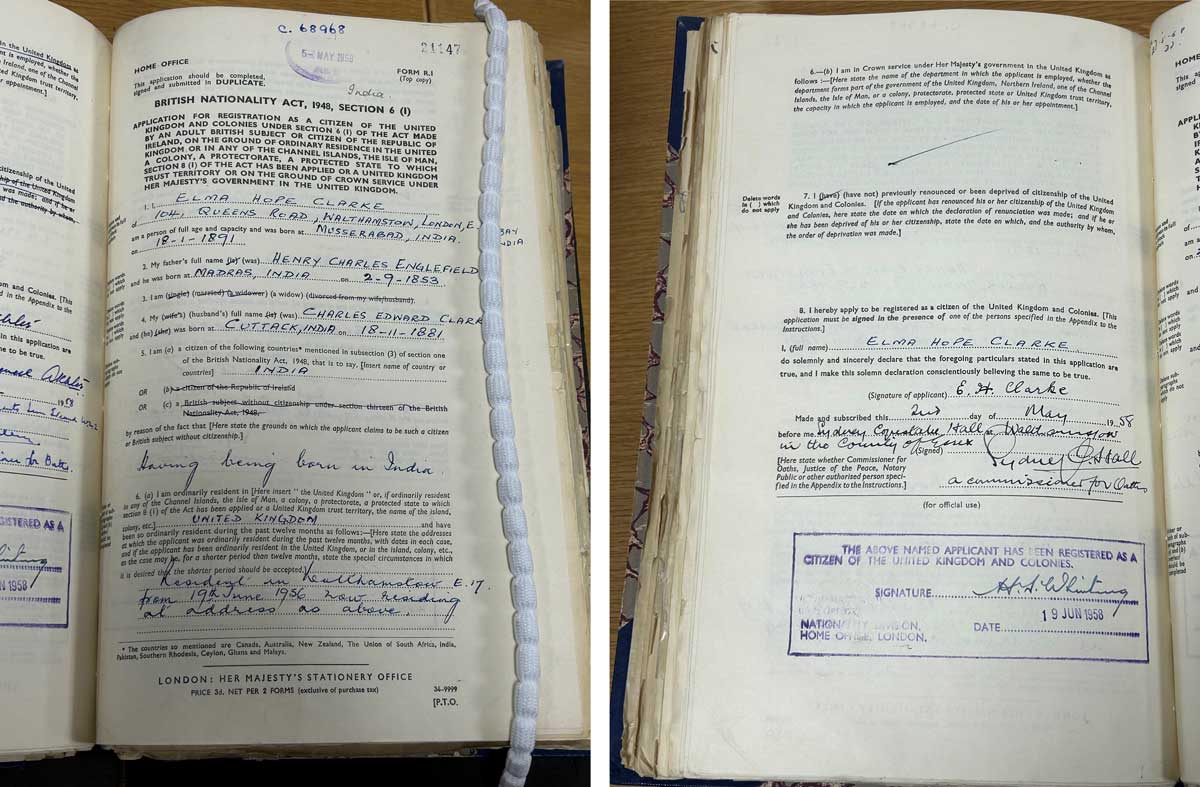 C. 68968
5 MAY 1958
21147
HOME OFFICE
This application should be completed,
signed and submitted in DUPLICATE.
FORM R.I
(Top copy)
India
BRITISH NATIONALITY ACT, 1948, SECTION 6 (I)
APPLICATION FOR REGISTRATION AS A CITIZEN OF THE UNITED
KINGDOM AND COLONIES UNDER SECTION 6 (I) OF THE ACT MADE
BY AN ADULT BRITISH SUBJECT OR CITIZEN OF THE REPUBLIC OF
IRELAND, ON THE GROUND OF ORDINARY RESIDENCE IN THE UNITED
KINGDOM OR IN ANY OF THE CHANNEL ISLANDS, THE ISLE OF MAN,
A COLONY, A PROTECTORATE, A PROTECTED STATE TO WHICH
SECTION 8 (I) OF THE ACT HAS BEEN APPLIED OR A UNITED KINGDOM
TRUST TERRITORY OR ON THE GROUND OF CROWN SERVICE UNDER
HER MAJESTY'S GOVERNMENT IN THE UNITED KINGDOM.
1. I, ELMA HOPE CLARKE
of 104, QUEENS ROAD, WALTHAMSTOW, LONDON, E.
am a person of full age and capacity and was born at MUSSERABAD, INDIA.
on 18-1-1891
2. My father's full name (is) (was) HENRY CHARLES ENGLEFIELD
and he was born at MADRAS, INDIA on 2-9-1853
3. I am (single) (married) (a widower) (a widow) (divorced from my wife/husband).
4. My (wife's) (husband's) full name (is) (was) CHARLES EDWARD CLARK
and (he) (she) was born at CUTTACK, INDIA on 18-11-1881
5. I am (a) a citizen of the following countries* mentioned in subsection (3) of section one
of the British Nationality Act, 1948, that is to say, [Insert name of country or
countries] INDIA
OR (b) a citizen of the Republic of Ireland
OR (c) a British subject without citizenship under section thirteen of the British
Nationality Act, 1948,
by reason of the fact that [Here state the grounds on which the applicant claims to be such a citizen
or British subject without citizenship.]
Having being born in India
6. (a) I am ordinarily resident in [Here insert " the United Kingdom " or, if ordinarily resident
in any of the Channel Islands, the Isle of Man, a colony, a protectorate, a protected state to which
section 8 (I) of the Act has been applied or a United Kingdom trust territory, the name of the island,
colony, etc.] UNITED KINGDOM and have
been so ordinarily resident during the past twelve months as follows:—[Here state the addresses
at which the applicant was ordinarily resident during the past twelve months, with dates in each case,
and if the applicant has been ordinarily resident in the United Kingdom, or in the island, colony, etc.,
as the case may be, for a shorter period than twelve months, state the special circumstances in which
it is desired that the shorter period should be accepted.]
Resident in Walthamstow E.17.
from 19th June 1956 now residing
at address as above.
* The countries so mentioned are Canada, Australia, New Zealand, The Union of South Africa, India,
Pakistan, Southern Rhodesia, Ceylon, Ghana and Malaya.
LONDON: HER MAJESTY'S STATIONERY OFFICE
PRICE 3d. NET PER 2 FORMS (exclusive of purchase tax)
34-9999
[P.T.O.
6.—(b) I am in Crown service under Her Majesty's government in the United Kingdom as
follows :—[Here state the name of the department in which the applicant is employed, whether the
department forms part of the government of the United Kingdom, Northern Ireland, one of the Channel
Islands, the Isle of Man, or a colony, protectorate, protected state or United Kingdom trust territory,
the capacity in which the applicant is employed, and the date of his or her appointment.]
Delete words
in ( ) which
do not apply
7. I (have) (have not) previously renounced or been deprived of citizenship of the United
Kingdom and Colonies. [If the applicant has renounced his or her citizenship of the United Kingdom
and Colonies, here state the date on which the declaration of renunciation was made; and if he or
she has been deprived of his or her citizenship, state the date on which, and the authority by whom,
the order of deprivation was made.]
8. I hereby apply to be registered as a citizen of the United Kingdom and Colonies. [This
application must be signed in the presence of one of the persons specified in the Appendix to the
Instructions.]
I, (full name) ELMA HOPE CLARKE
do solemnly and sincerely declare that the foregoing particulars stated in this application are
true, and I make this solemn declaration conscientiously believing the same to be true.
(Signature of applicant) E. H. Clarke
Made and subscribed this 2nd day of May 1958
before me, Sydney Hall at Walthamstow
in the County of Essex
(Signed) Sydney C. Hall
[Here state whether Commissioner for
Oaths, Justice of the Peace, Notary
Public or other authorised person speci-
fied in the Appendix to the Instructions.]
a commissioner for Oaths
(for official use)
THE ABOVE NAMED APPLICANT HAS BEEN REGISTERED AS A
CITIZEN OF THE UNITED KINGDOM AND COLONIES.
SIGNATURE H. S. Whiting
NATIONALITY DIVISION,
HOME OFFICE, LONDON.
DATE 19 JUN 1958